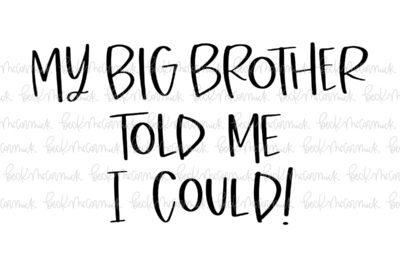 MY BIG BROTHER
TOLD ME
I COULD!